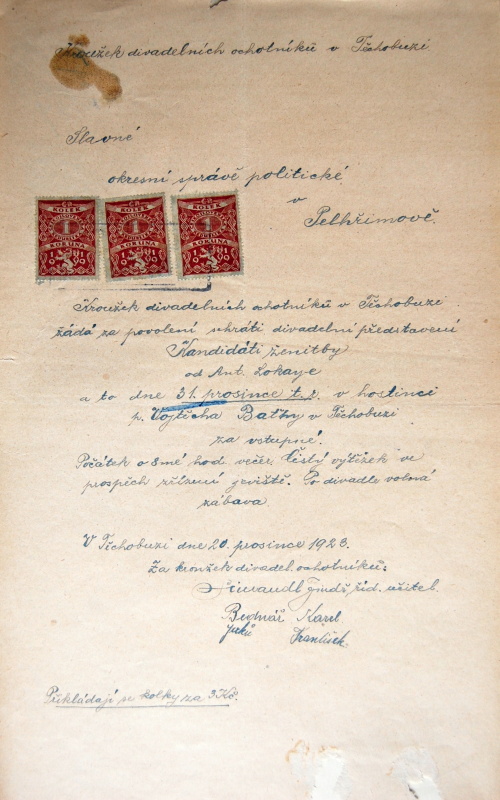 Kroužek divadelních ochotníků v Těchobuzi
Slavné
okresní správě politické
v
Pelhřimově.
ČR ČR ČR
KOLEK KOLEK KOLEK
1 1 1
KORUNA KORUNA KORUNA
Kroužek divadelních ochotníků v Těchobuzi
žádá za povolení uhráti divadelní představení
Kandidáti ženitby
od Ant. Lokaye
a to dne 31. prosince t.r. v hostinci
p. Vojtěcha Baťhy v Těchobuzi
za vstupné.
Počátek o 8mé hod. večer. Čistý výtěžek ve
prospěch zřízení jeviště. Po divadle volná
zábava.
V Těchobuzi dne 20. prosince 1923.
Za kroužek divadel. ochotníků:
říd. učitel.
Bednář Karel
Jaků František
Přikládají se kolky za 3 Kč.